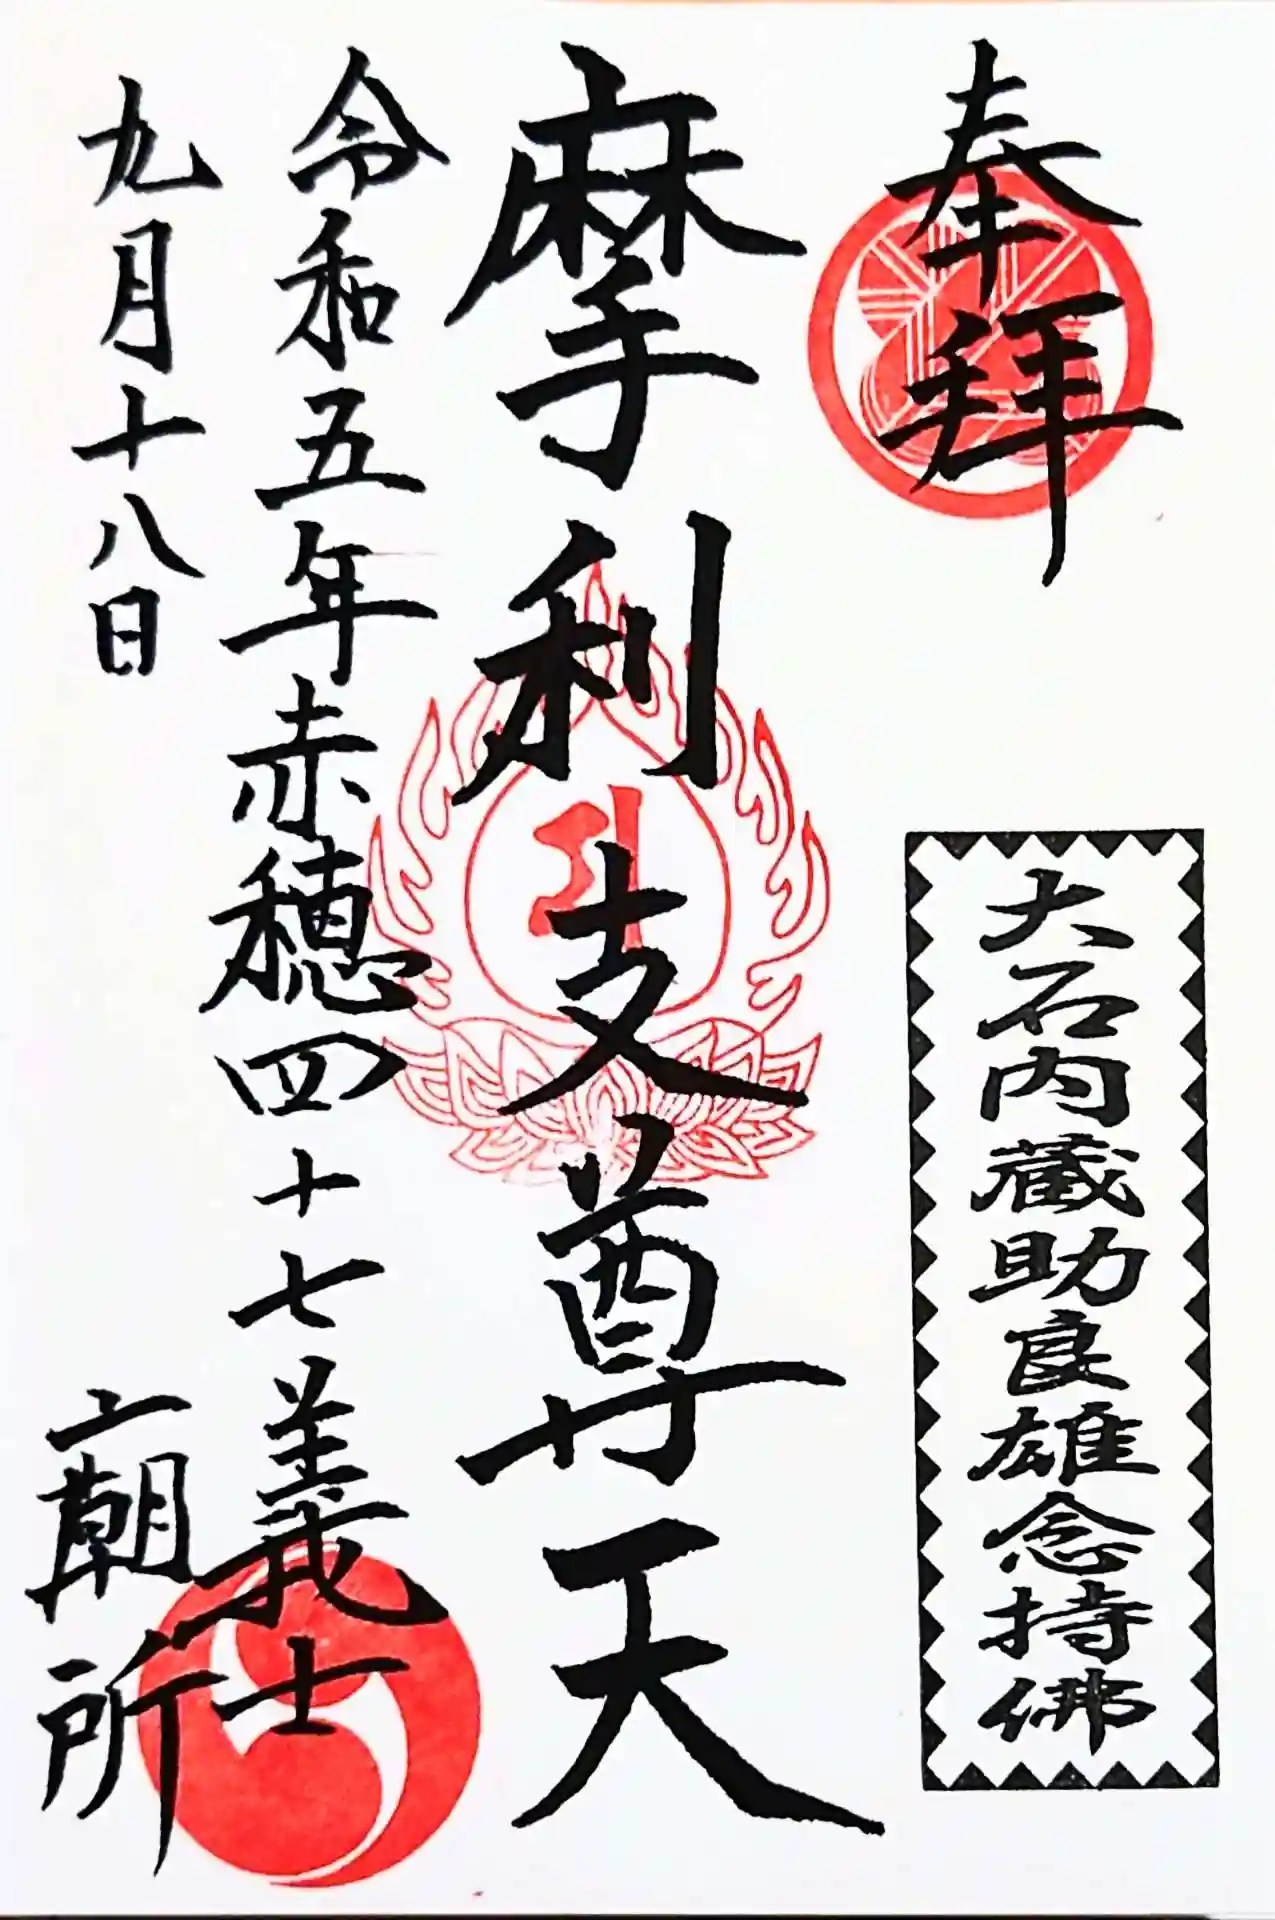 奉拜
大石内蔵助良雄念持佛
摩利支尊天
令和五年赤穂四十七義士
九月十八日
二朝所